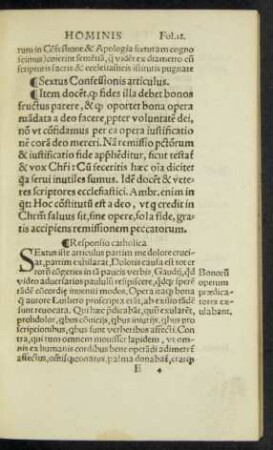 HOMINIS Fol.12.
rum in Cōfessione & Apologia suorum cogno
scimus) coierint semētiā, q̄ vidēt ex diametro cū
scripturis sacris & ecclesiasticis istitutis pugnāte
¶Sextus Confessionis articulus.
¶Item docēt, ꝙ fides illa debet bonos
fructus parere, & ꝙ oportet bona opera
mādata a deo facere, ppter voluntatē dei,
nō vt cōfidamus per ea opera iustificatio
nē corā deo mereri. Nā remissio pctōrum
& iustificatio fide apphēditur, sicut testat̄
& vox Chri: Cū feceritis hæc oīa dicite:
serui inutiles sumus. Idē docēt & vete
res scriptores ecclesiastici. Ambr. enim in
qt: Hoc cōstitutū est a deo, vt q credit in
Chrm̄ saluus sit, sine opere, sola fide, gra
tis accipiens remissionem peccatorum.
¶Responsio catholica.
SExtus iste articulus partim me dolore crucia
bat, partim exhilarat, Doloris causa est tot er
rorū cōgeries in tā paucis verbis, Gaudij, qd
video aduersarios paululū respiscere, qdꝙ spe
rādē cōcordię inueniri modos, Opera itaqꝫ bona
q̄ autore Luthero proscripta erāt, ab exilio fidē
sunt reuocata. Qui hæc pdicabāt, qui exularēt,
Bonorū
operum
prædica
tores ex
ulabant.
scriptionibus, qbus sunt verberibus affecti. Con
tra, qui tum omnem mouisset lapidem, vt
nis ex humanis cordibus bene operādi
affectus,
palma donabat̄,
E